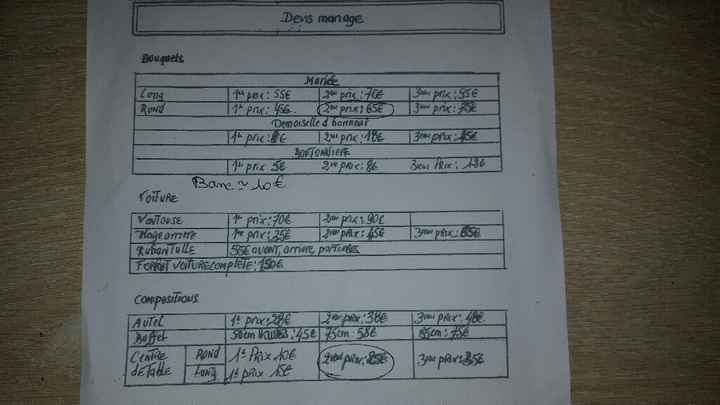 Devis mariage
Bouquets
Mariée
Long 1er prix: 55€ 2eme prix: 3eme prix: 95€
Rond 1er prix: 45€ 2eme prix: 65€ 3eme prix:
Demoiselle d'honneur
1er prix: 2eme prix: 3eme prix:
BOUTONNIERE
1er prix 5€ 2eme prix: 8€ 3eme Prix:
Banc ~ 10€
VOITURE
VENTOUSE 1er prix: 70€ 2eme prix: 90€
Plage arrière 1er prix: 25€ 2eme prix: 45€ 3eme prix: 65€
Ruban Tulle 55€ avant, arrière, portières
FORFAIT VOITURE complète: 150€
Compositions
AUTEL 1er prix: 2eme prix: 38€ 3eme prix: 48€
Buffet 50cm : 45€ 75cm: 58€ 85cm: 75€
Centre ROND 1er Prix 10€ 2eme prix: 25€ 3eme prix: 35€
de Table Long 1er prix 15€